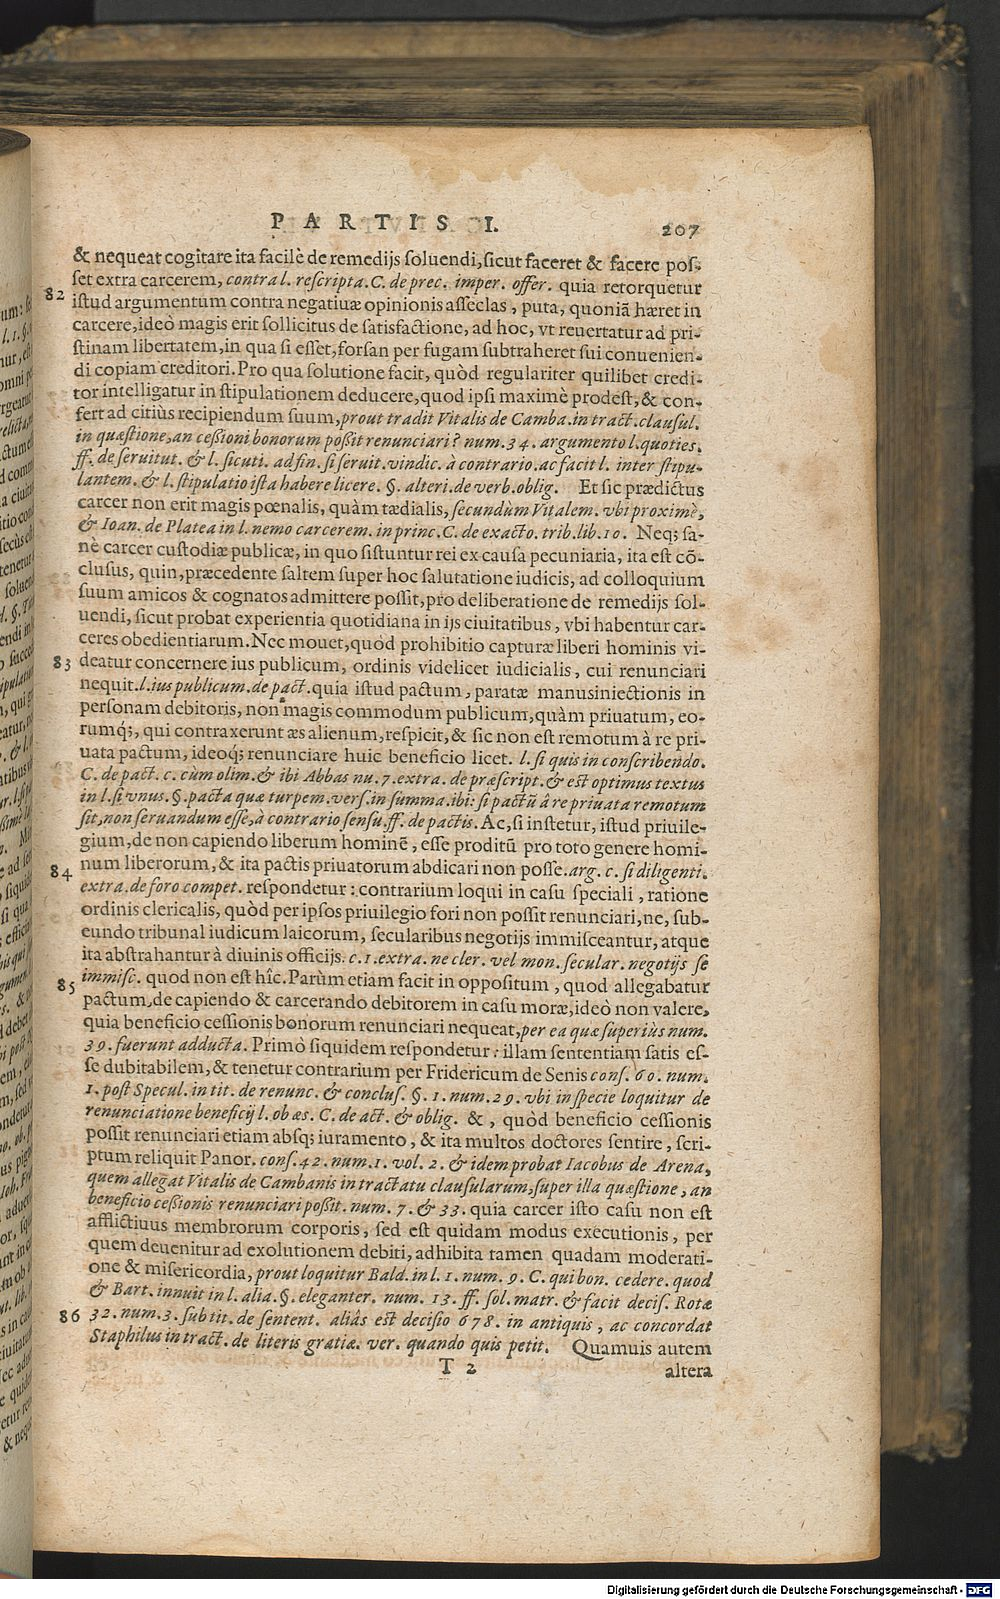 PARTIS I. 207
& nequeat cogitare ita facilè de remedijs soluendi, sicut faceret & facere pos-
set extra carcerem, contra l. rescripta. C. de prec. imper. offer. quia retorquetur
82 istud argumentum contra negatiuæ opinionis asseclas, puta, quoniã hæret in
carcere, ideò magis erit sollicitus de satisfactione, ad hoc, vt reuertatur ad pri-
stinam libertatem, in qua si esset, forsan per fugam subtraheret sui conuenien-
di copiam creditori. Pro qua solutione facit, quòd regulariter quilibet credi-
tor intelligatur in stipulationem deducere, quod ipsi maximè prodest, & con-
fert ad citiùs recipiendum suum, prout tradit Vitalis de Camba. in tract. clausul.
in quæstione, an cessioni bonorum possit renunciari? num. 34. argumento l. quoties.
ff. de seruitut. & l. sicuti. ad fin. si seruit. vindic. à contrario. ac facit l. inter stipu-
lantem. & l. stipulatio ista habere licere. §. alteri. de verb. oblig. Et sic prædictus
carcer non erit magis pœnalis, quàm tædialis, secundùm Vitalem. vbi proximè,
& Ioan. de Platea in l. nemo carcerem. in princ. C. de exacto. trib. lib. 10. Neq; sa-
nè carcer custodiæ publicæ, in quo sistuntur rei ex causa pecuniaria, ita est cõ-
clusus, quin, præcedente saltem super hoc salutatione iudicis, ad colloquium
suum amicos & cognatos admittere possit, pro deliberatione de remedijs sol-
uendi, sicut probat experientia quotidiana in ijs ciuitatibus, vbi habentur car-
ceres obedientiarum. Nec mouet, quòd prohibitio capturæ liberi hominis vi-
83 deatur concernere ius publicum, ordinis videlicet iudicialis, cui renunciari
nequit. l. ius publicum. de pact. quia istud pactum, paratæ manusiniectionis in
personam debitoris, non magis commodum publicum, quàm priuatum, eo-
rumq́;, qui contraxerunt æs alienum, respicit, & sic non est remotum à re pri-
uata pactum, ideoq́; renunciare huic beneficio licet. l. si quis in conscribendo.
C. de pact. c. cùm olim. & ibi Abbas nu. 7. extra. de præscript. & est optimus textus
in l. si vnus. §. pacta quæ turpem. vers. in summa. ibi: si pactũ à re priuata remotum
sit, non seruandum esse, à contrario sensu. ff. de pactis. Ac, si instetur, istud priuile-
gium, de non capiendo liberum hominẽ, esse proditũ pro toto genere homi-
84 num liberorum, & ita pactis priuatorum abdicari non posse. arg. c. si diligenti.
extra. de foro compet. respondetur: contrarium loqui in casu speciali, ratione
ordinis clericalis, quòd per ipsos priuilegio fori non possit renunciari, ne, sub-
eundo tribunal iudicum laicorum, secularibus negotijs immisceantur, atque
ita abstrahantur à diuinis officijs. c. 1. extra. ne cler. vel mon. secular. negotijs se
85 immisc. quod non est hîc. Parùm etiam facit in oppositum, quod allegabatur
pactum, de capiendo & carcerando debitorem in casu moræ, ideò non valere,
quia beneficio cessionis bonorum renunciari nequeat, per ea quæ superiùs num.
39. fuerunt adducta. Primò siquidem respondetur: illam sententiam satis es-
se dubitabilem, & tenetur contrarium per Fridericum de Senis cons. 60. num.
1. post Specul. in tit. de renunc. & conclus. §. 1. num. 29. vbi in specie loquitur de
renunciatione beneficij l. ob æs. C. de act. & oblig. &, quòd beneficio cessionis
possit renunciari etiam absq; iuramento, & ita multos doctores sentire, scri-
ptum reliquit Panor. cons. 42. num. 1. vol. 2. & idem probat Iacobus de Arena,
quem allegat Vitalis de Cambanis in tractatu clausularum, super illa quæstione, an
beneficio cessionis renunciari possit. num. 7. & 33. quia carcer isto casu non est
afflictiuus membrorum corporis, sed est quidam modus executionis, per
quem deuenitur ad exolutionem debiti, adhibita tamen quadam moderati-
one & misericordia, prout loquitur Bald. in l. 1. num. 9. C. qui bon. cedere. quod
& Bart. innuit in l. alia. §. eleganter. num. 13. ff. sol. matr. & facit decis. Rotæ
86 32. num. 3. sub tit. de sentent. aliâs est decisio 678. in antiquis, ac concordat
Staphilus in tract. de literis gratiæ. ver. quando quis petit. Quamuis autem
T 2 altera
Digitalisierung gefördert durch die Deutsche Forschungsgemeinschaft - DFG